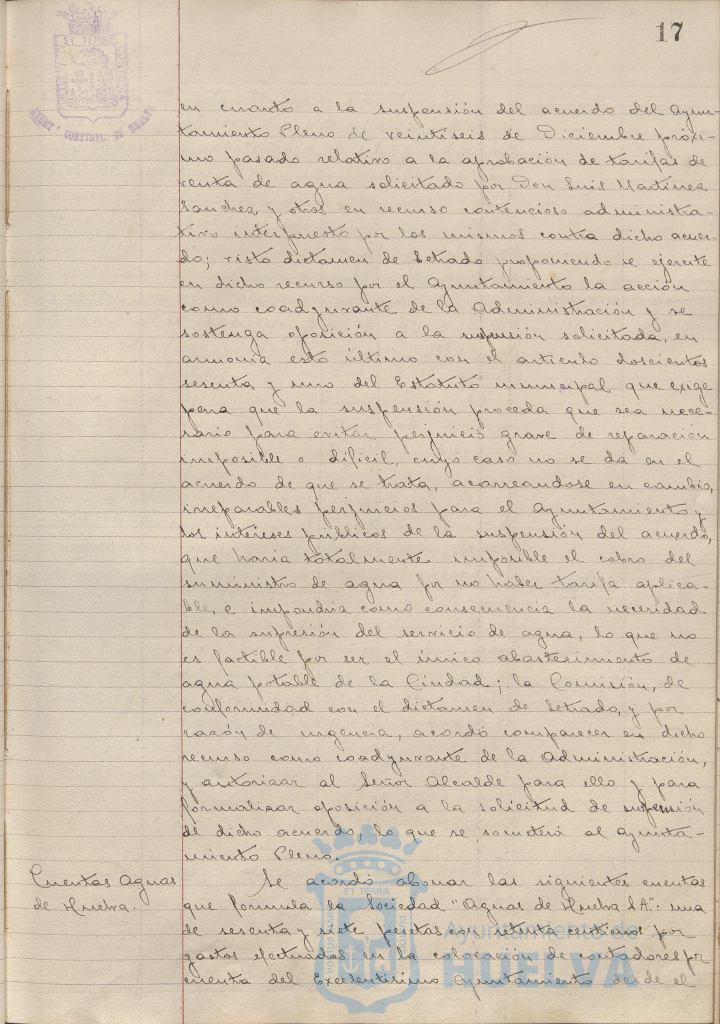 17
en cuanto a la suspensión del acuerdo del Ayun-
tamiento Pleno de veintiseis de Diciembre próxi-
mo pasado relativo a la aprobación de tarifas de
venta de agua solicitado por Don Luis Martínez
Sanchez y otros en recurso contencioso administra-
tivo interpuesto por los mismos contra dicho acuer-
do; visto dictamen de Letrado proponiendo se ejercite
en dicho recurso por el Ayuntamiento la acción
como coadyuvante de la Administración y se
sostenga oposición a la suspensión solicitada, en
armonia esto último con el articulo doscientos
sesenta y uno del Estatuto municipal que exige
para que la suspensión proceda que sea nece-
sario para evitar perjuicio grave de reparación
imposible o dificil, cuyo caso no se da en el
acuerdo de que se trata, acarreandose en cambio,
irreparables perjuicios para el Ayuntamiento y
los intereses públicos de la suspensión del acuerdo,
que haria totalmente imposible el cobro del
suministro de agua por no haber tarifa aplica-
ble, e impondria como consecuencia la necesidad
de la supresión del servicio de agua, lo que no
es factible por ser el único abastecimiento de
agua potable de la Ciudad; la Comisión, de
conformidad con el dictamen de Letrado, y por
razón de urgencia, acordó comparecer en dicho
recurso como coadyuvante de la Administración,
y autorizar al Señor Alcalde para ello y para
formalizar oposición a la solicitud de suspensión
de dicho acuerdo, lo que se someterá al Ayunta-
miento Pleno.
Cuentas Aguas
de Huelva.
Se acordó abonar las siguientes cuentas
que formula la Sociedad "Aguas de Huelva S.A.": una
de sesenta y siete pesetas con setenta centimos por
gastos efectuados en la colocación de contadores por
cuenta del Excelentisimo Ayuntamiento desde el
Ayuntamiento de
HUELVA